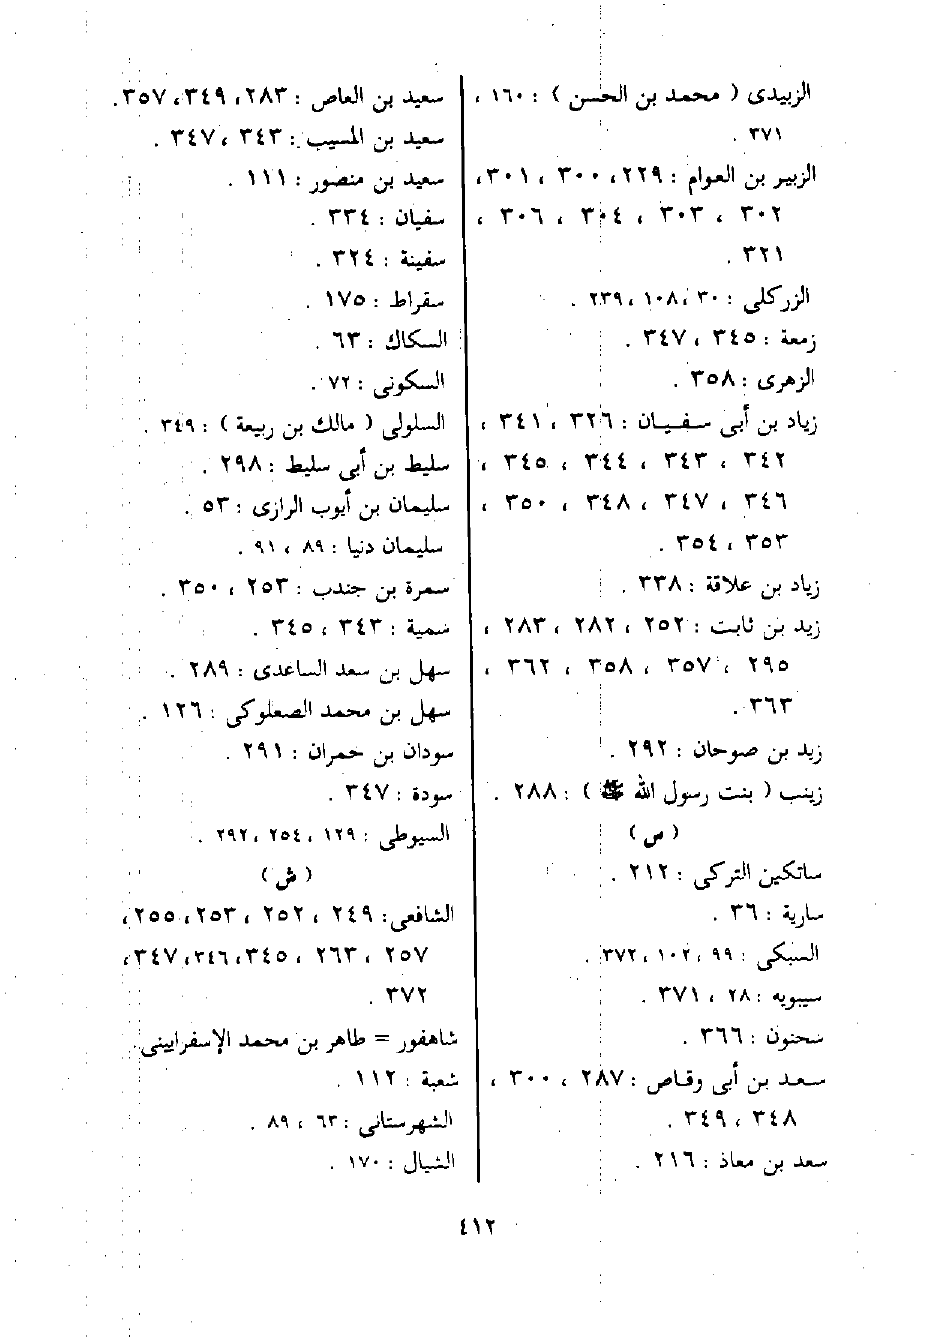 الزبيدى ( محمد بن الحسن ) : ١٦٠ ،
٣٧١ .
الزبير بن العوام : ٢٢٩ ، ٣٠٠ ، ٣٠١ ،
٣٠٢ ، ٣٠٣ ، ٣٠٤ ، ٣٠٦ ،
٣٢١ .
الزركلى : ٣٠ ، ١٠٨ ، ٢٣٩ .
زمعة : ٣٤٥ ، ٣٤٧ .
الزهرى : ٣٥٨ .
زياد بن أبى سفيان : ٣٢٦ ، ٣٤١ ،
٣٤٢ ، ٣٤٣ ، ٣٤٤ ، ٣٤٥ ،
٣٤٦ ، ٣٤٧ ، ٣٤٨ ، ٣٥٠ ،
٣٥٣ ، ٣٥٤ .
زياد بن علاقة : ٣٣٨ .
زيد بن ثابت : ٢٥٢ ، ٢٨٢ ، ٢٨٣ ،
٢٩٥ ، ٣٥٧ ، ٣٥٨ ، ٣٦٢ ،
٣٦٣ .
زيد بن صوحان : ٢٩٢ .
زينب ( بنت رسول الله ﷺ ) : ٢٨٨ .
( س )
ساتكين التركى : ٢١٢ .
سارية : ٣٦ .
السبكى : ٩٩ ، ١٠٢ ، ٣٧٢ .
سيبويه : ٢٨ ، ٣٧١ .
سحنون : ٣٦٦ .
سعد بن أبى وقاص : ٢٨٧ ، ٣٠٠ ،
٣٤٨ ، ٣٤٩ .
سعد بن معاذ : ٢١٦ .
سعيد بن العاص : ٢٨٣ ، ٣٤٩ ، ٣٥٧ .
سعيد بن المسيب : ٣٤٣ ، ٣٤٧ .
سعيد بن منصور : ١١١ .
سفيان : ٣٣٤ .
سفينة : ٣٢٤ .
سقراط : ١٧٥ .
السكاك : ٦٣ .
السكونى : ٧٢ .
السلولى ( مالك بن ربيعة ) : ٣٤٩ .
سليط بن أبى سليط : ٢٩٨ .
سليمان بن أيوب الرازى : ٥٣ .
سليمان دنيا : ٨٩ ، ٩١ .
سمرة بن جندب : ٢٥٣ ، ٣٥٠ .
سمية : ٣٤٣ ، ٣٤٥ .
سهل بن سعد الساعدى : ٢٨٩ .
سهل بن محمد الصعلوكى : ١٢٦ .
سودان بن حمران : ٢٩١ .
سودة : ٣٤٧ .
السيوطى : ١٢٩ ، ٢٥٤ ، ٢٩٢ .
( ش )
الشافعى : ٢٤٩ ، ٢٥٢ ، ٢٥٣ ، ٢٥٥ ،
٢٥٧ ، ٢٦٣ ، ٣٤٥ ، ٣٤٦ ، ٣٤٧ ،
٣٧٢ .
شاهفور = طاهر بن محمد الإسفرايينى .
شعبة : ١١٢ .
الشهرستانى : ٦٣ ، ٨٩ .
الشيال : ١٧٠ .
٤١٢